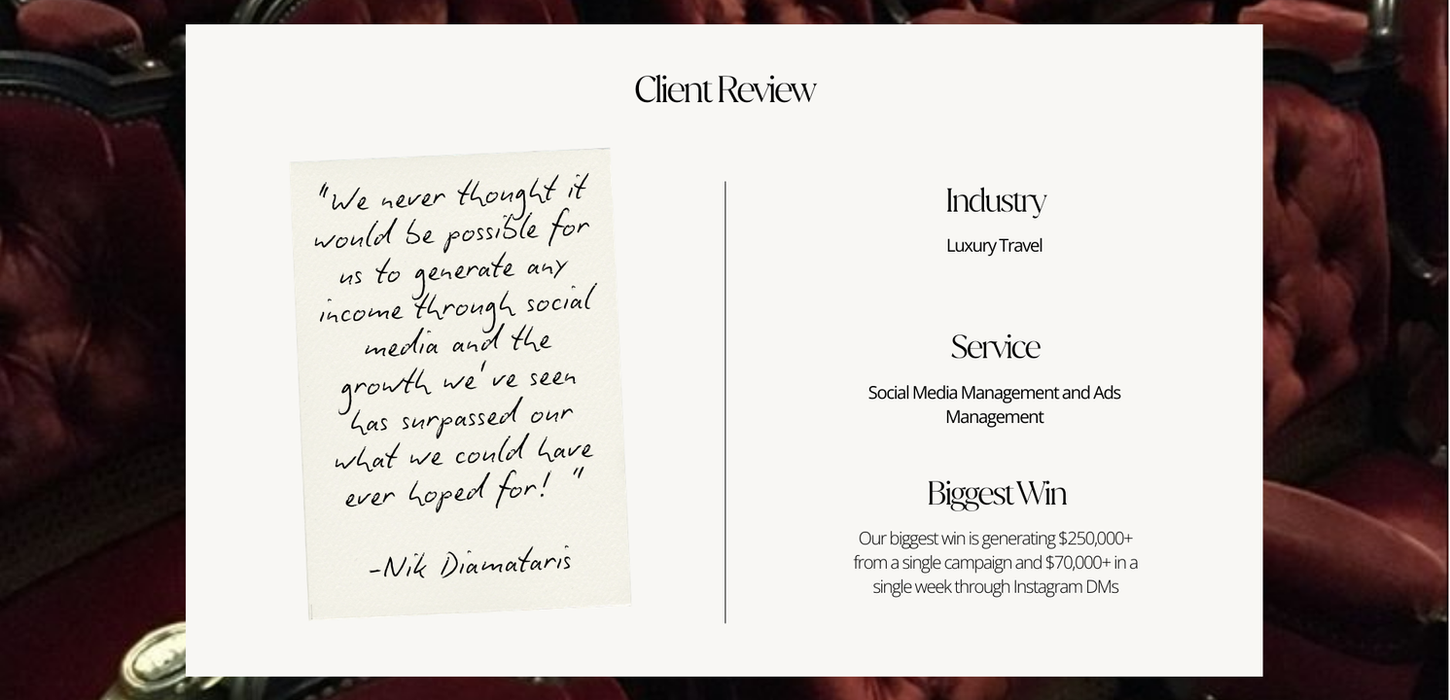 Client Review
"We never thought it
would be possible for
us to generate any
income through social
media and the
growth we've seen
has surpassed our
what we could have
ever hoped for! "
-Nik Diamataris
Industry
Luxury Travel
Service
Social Media Management and Ads
Management
Biggest Win
Our biggest win is generating $250,000+
from a single campaign and $70,000+ in a
single week through Instagram DMs